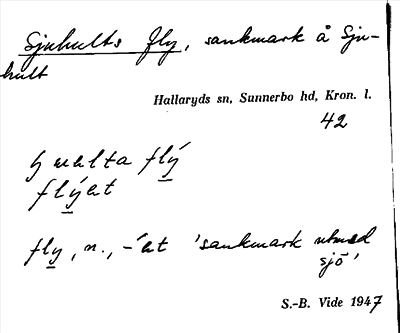 Sjuhults fly, sankmark å Sju-
hult
Hallaryds sn, Sunnerbo hd, Kron. l.
42
flý
flýet
fly, n., -´et 'sankmark utmed
sjö'
S.-B. Vide 1947